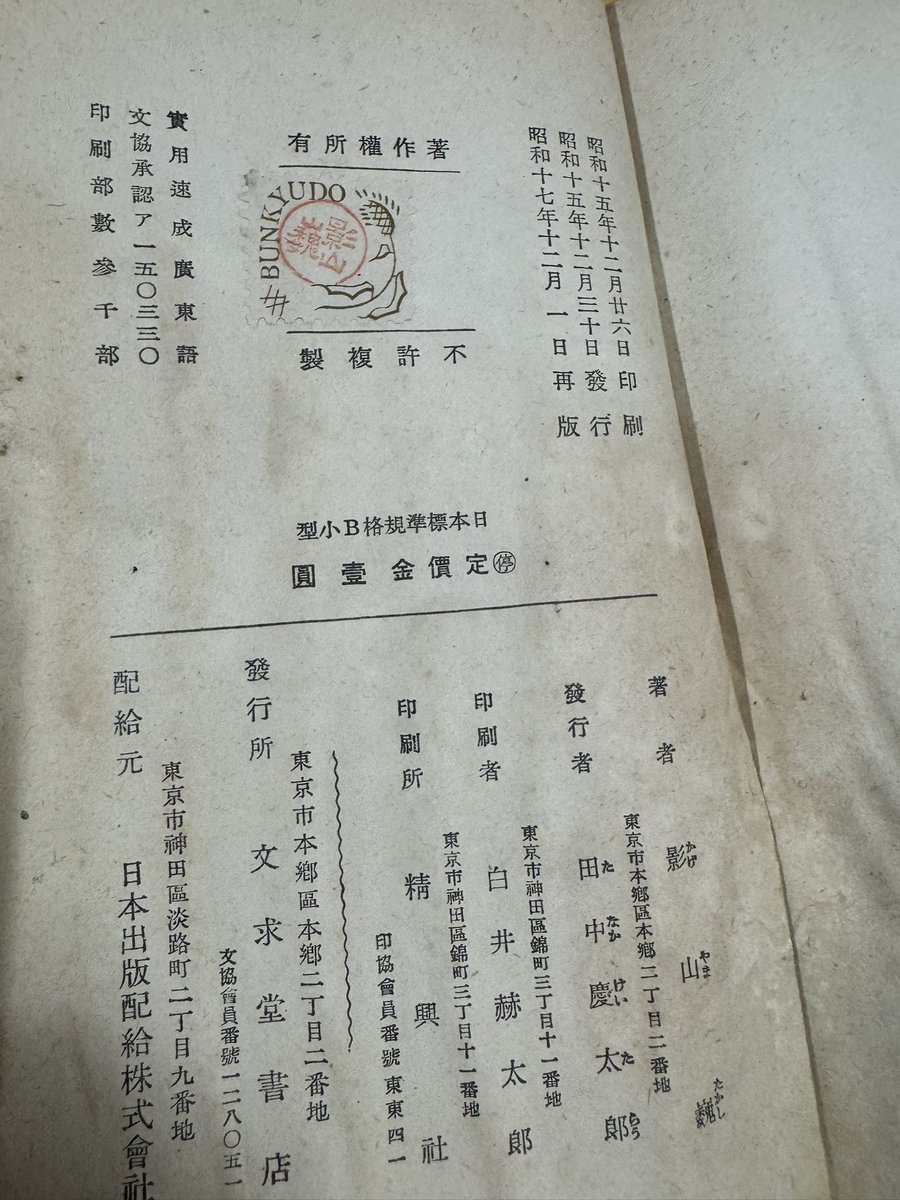 昭和十五年十二月廿六日印刷
昭和十五年十二月三十日發行
昭和十七年十二月一日再版
著作權所有
BUNKYUDO
影山巍
不許複製
實用速成廣東語
文協承認ア一五〇三三〇
印刷部數參千部
日本標準規格B小型
停定價金壹圓
著者 影山巍
かげ やま たかし
發行者 東京市本鄕區本鄕二丁目二番地
田中慶太郎
た なか けい た らう
印刷者 東京市神田區錦町三丁目十一番地
白井赫太郎
印刷所 東京市神田區錦町三丁目十一番地
精興社
印協會員番號東東四一
發行所 東京市本鄕區本鄕二丁目二番地
文求堂書店
文協會員番號一二八〇五一
配給元 東京市神田區淡路町二丁目九番地
日本出版配給株式會社